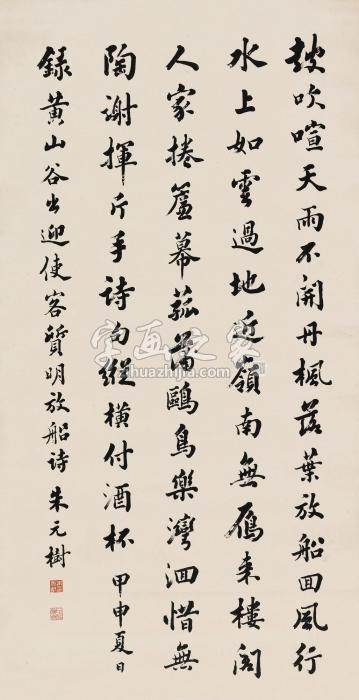 鼓吹喧天雨不開丹楓落葉放船囬風行
水上如雲過地近嶺南無鴈来樓閣
人家捲簾幕菰蒲鷗鳥樂灣洄惜無
陶謝揮斤手詩句縱橫付酒杯 甲申夏日
録黄山谷出迎使客質明放船詩 朱元樹
字画之家
zihuazhijia.com